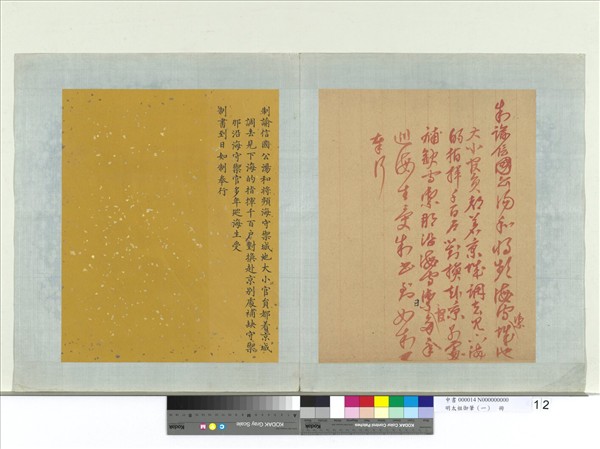 制諭信國公湯和將頻海守禦城池
大小官員都着京城調去見下海
的指揮千百戶對換赴京別處
補缺守禦那沿海守禦官多年
廵海生受制書到日如制
奉行
制諭信國公湯和將頻海守禦城池大小官員都着京城
調去見下海的指揮千百戶對換赴京別處補缺守禦
那沿海守禦官多年廵海生受
制書到日如制奉行
Kodak Gray Scale
C Y M
Kodak
KODAK Color Control Patches
Kodak
中書 000014 N000000000
明太祖御筆（一） 冊
12